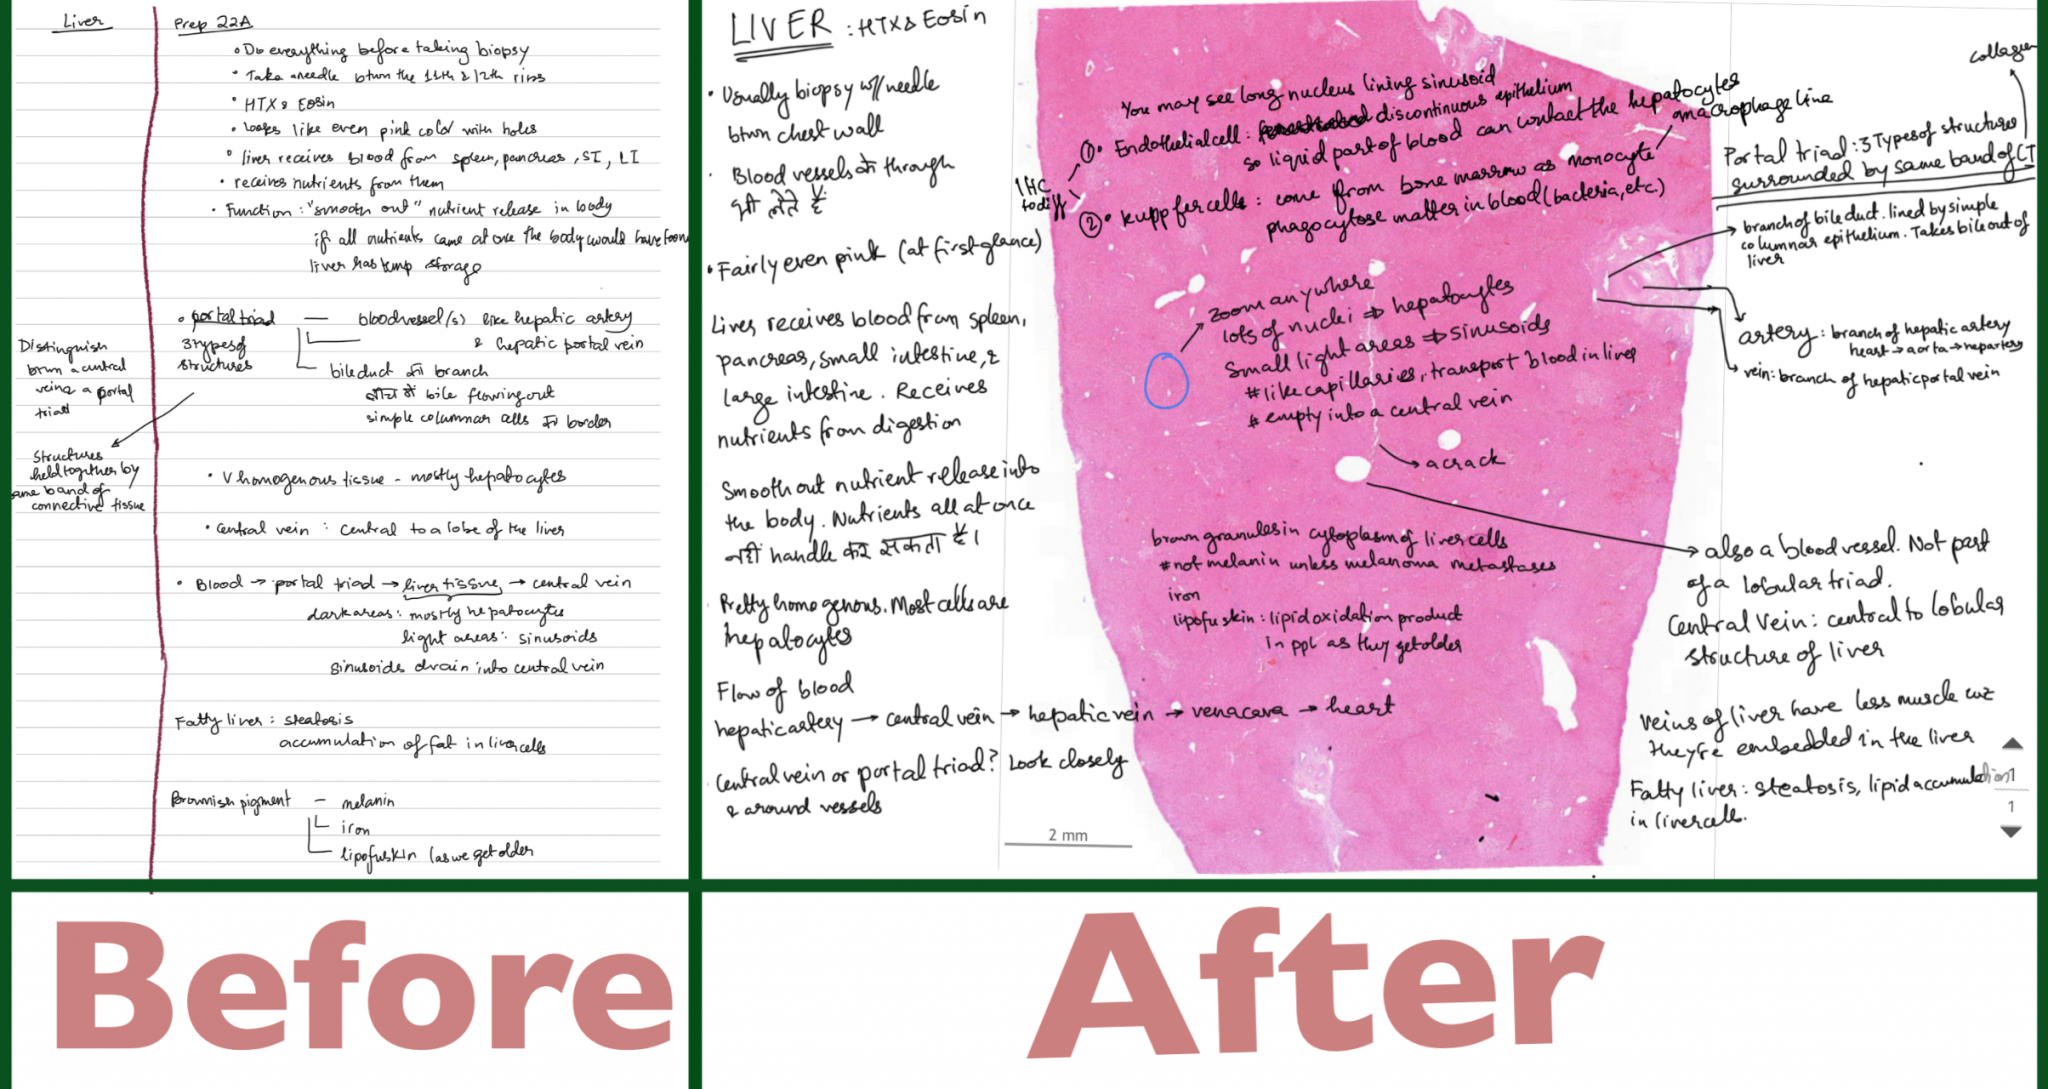 Liver
Prep 22A
• Do everything before taking biopsy
• Take a needle btwn the 11th & 12th ribs
• HTX & Eosin
• Looks like even pink color with holes
• liver receives blood from spleen, pancreas, SI, LI
• receives nutrients from them
• Function: "smooth out" nutrient release in body
if all nutrients came at once the body would have
liver has temp storage
• portal triad — bloodvessel(s) like hepatic artery
& hepatic portal vein
3 types of
structures
bile duct का branch
bile flowing out
simple columnar cells का border
Distinguish
btwn a central
vein & a portal
triad
Structures
held together by
same band of
connective tissue
• V homogenous tissue - mostly hepatocytes
• Central vein : Central to a lobe of the liver
• Blood → portal triad → liver tissue → central vein
dark areas: mostly hepatocytes
light areas: sinusoids
sinusoids drain into central vein
Fatty liver : steatosis
accumulation of fat in liver cells
Brownish pigment — melanin
iron
lipofuskin (as we get older
LIVER : HTX & Eosin
• Usually biopsy w/ needle
btwn chest wall
• Blood vessels के through
भी लेते हैं
• Fairly even pink (at first glance)
Liver receives blood from spleen,
pancreas, small intestine, &
large intestine. Receives
nutrients from digestion
Smooth out nutrient release into
the body. Nutrients all at once
नहीं handle कर सकता है।
Pretty homogenous. Most cells are
hepatocytes
Flow of blood
hepatic artery → central vein → hepatic vein → vena cava → heart
Central vein or portal triad? Look closely
& around vessels
You may see long nucleus lining sinusoid
①• Endothelial cell: discontinuous epithelium
so liquid part of blood can contact the hepatocytes
macrophage line
IHC
to diff
②• kuppfer cells : come from bone marrow as monocyte
phagocytose matter in blood (bacteria, etc.)
zoom anywhere
lots of nuclei ⇒ hepatocytes
Small light areas ⇒ sinusoids
# like capillaries, transport blood in liver
# empty into a central vein
a crack
brown granules in cytoplasm of liver cells
# not melanin unless melanoma metastases
iron
lipofuskin : lipid oxidation product
in ppl as they get older
2 mm
collagen
Portal triad : 3 Types of structures
surrounded by same band of CT
branch of bile duct. lined by simple
columnar epithelium. Takes bile out of
liver
artery : branch of hepatic artery
heart → aorta → hep artery
vein: branch of hepatic portal vein
also a blood vessel. Not part
of a lobular triad.
Central Vein : central to lobular
structure of liver
Veins of liver have less muscle cuz
they're embedded in the liver
Fatty liver : steatosis, lipid accumulation
in liver cells.
1
1
Before
After